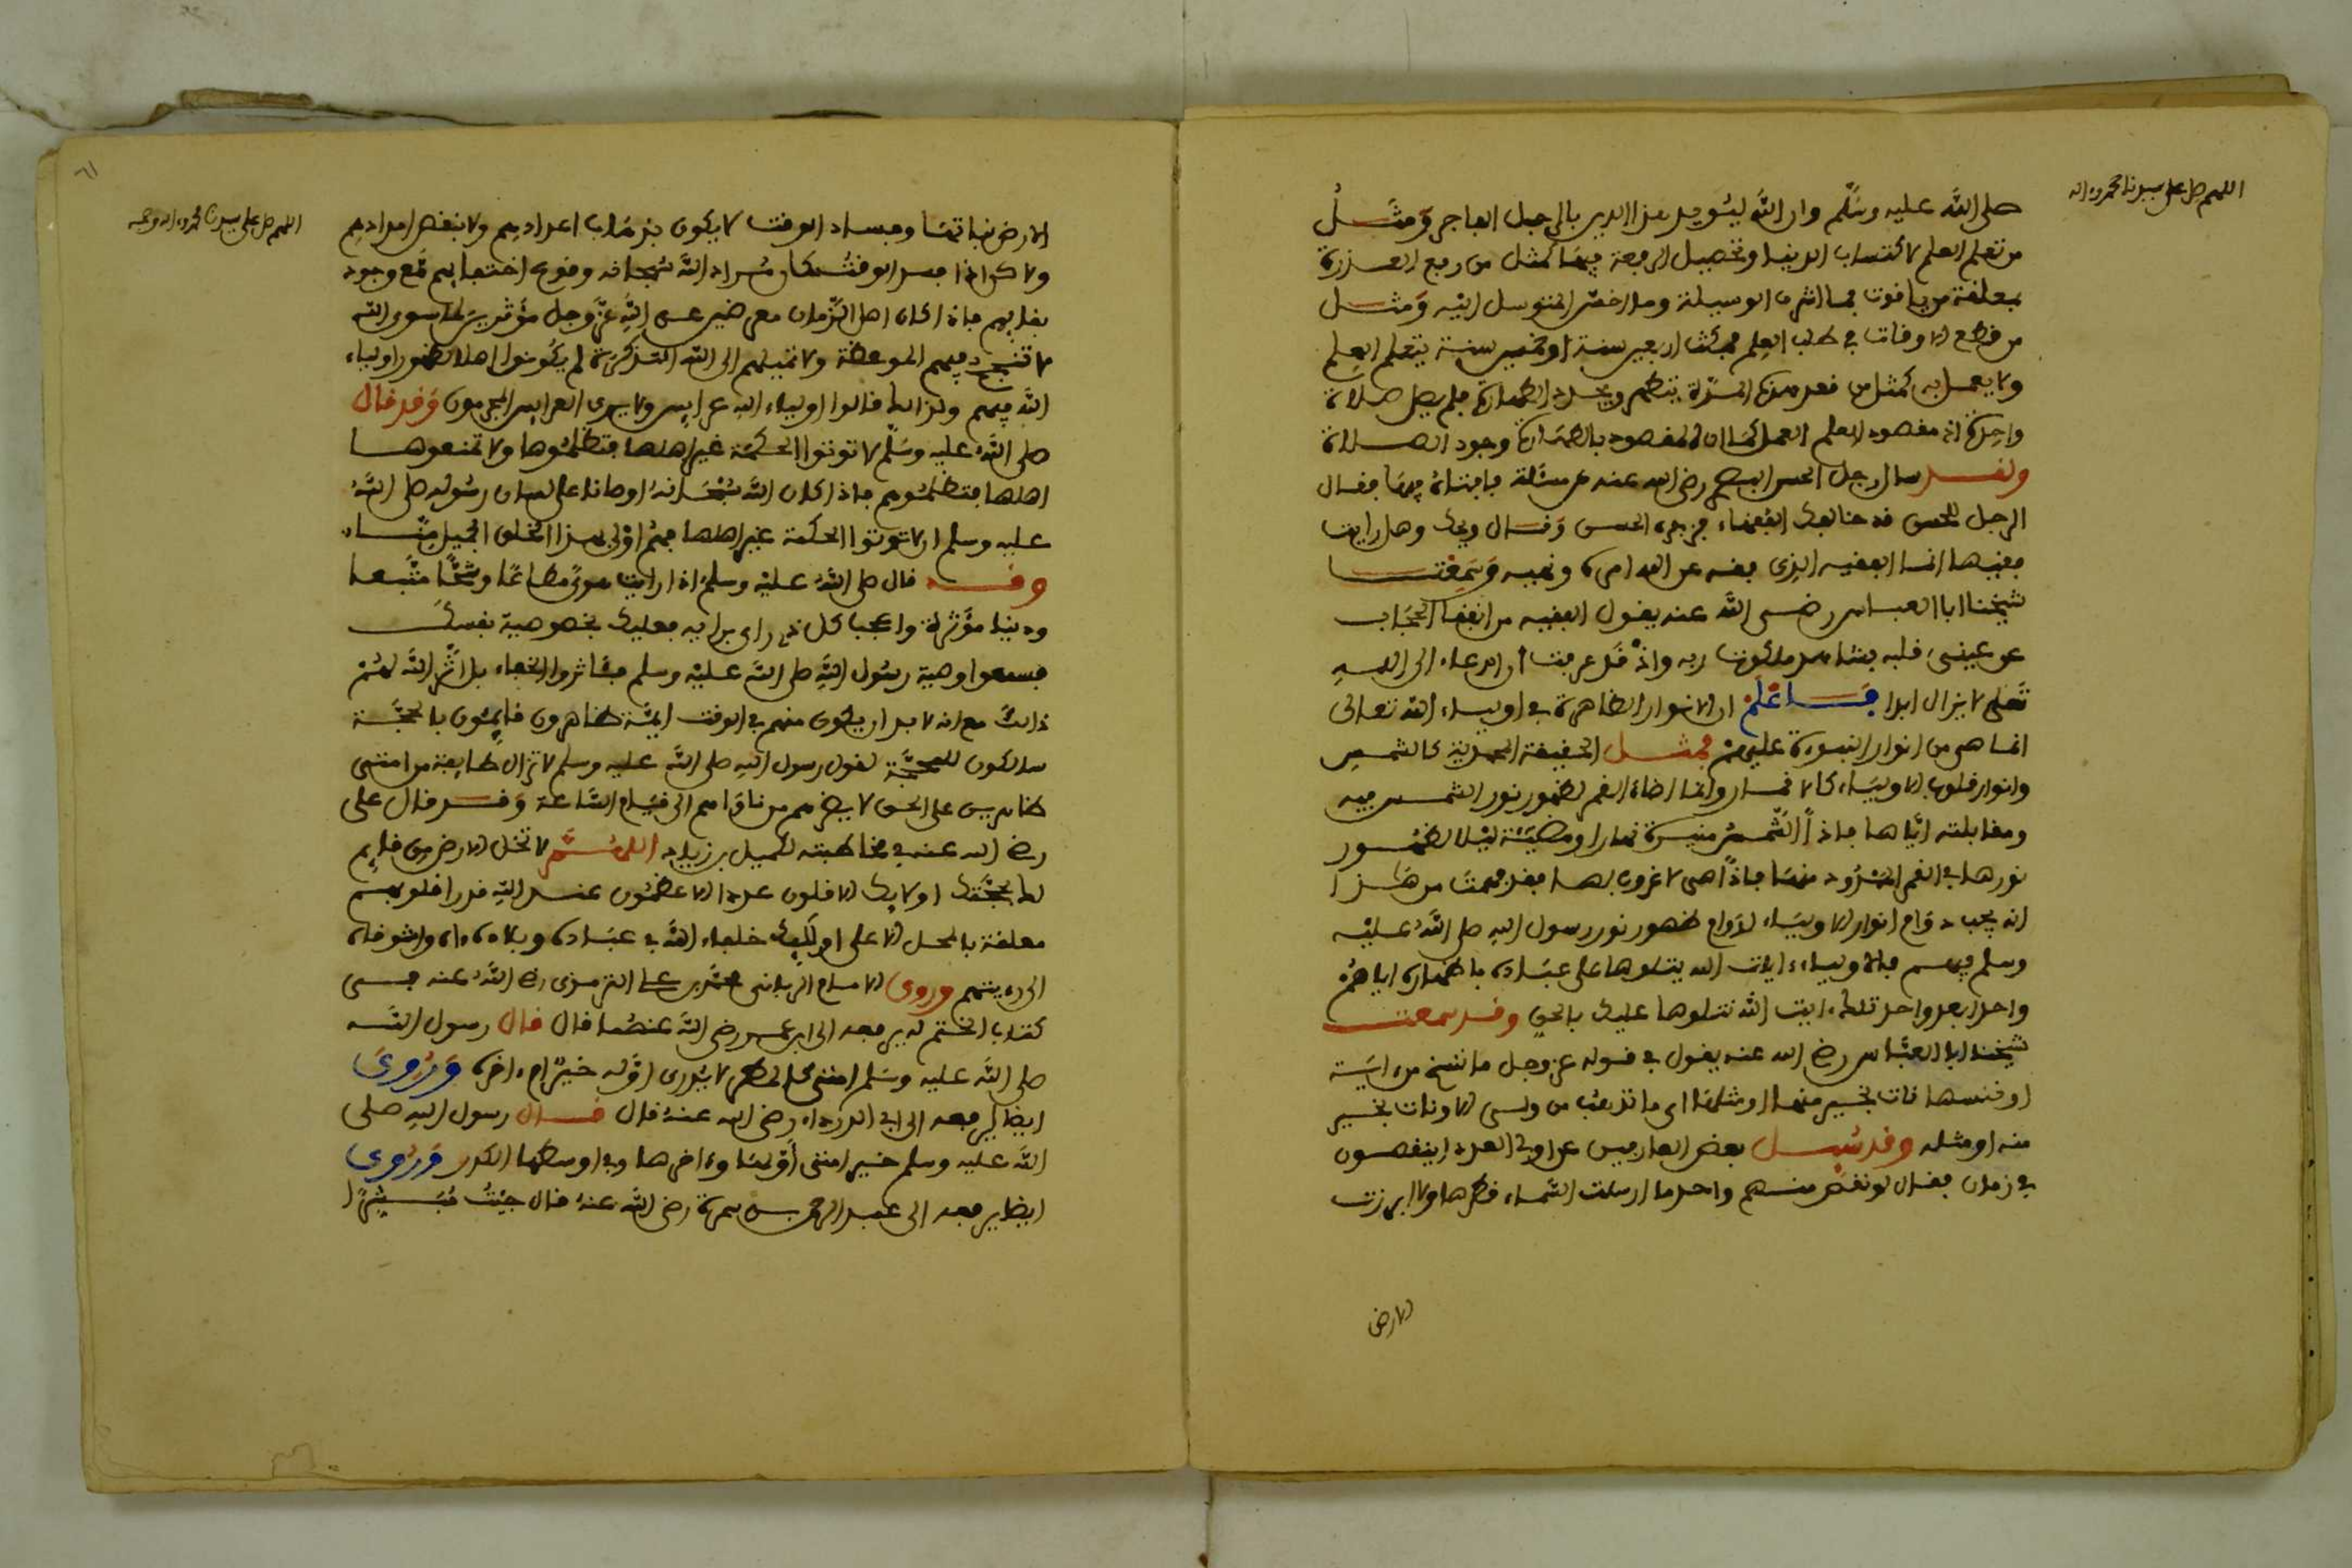 اللهم صل على سيدنا محمد وءاله
صلى الله عليه وسلم وان الله ليؤيد هذا الدين بالرجل الفاجر ومثل
من تعلم العلم لاكتساب الدنيا وتحصيل الرفعة فيها كمثل من رفع العذرة
بملعقة من ياقوت فما اشرف الوسيلة وما اخس المتوسل اليه ومثل
من قطع الاوقات في طلب العلم فمكث اربعين سنة او خمسين سنة يتعلم العلم
ولا يعمل به كمثل من قعد هذه المدة يتطهر ويجدد الطهارة فلم يصل صلاة
واحدة اذ مقصود العلم العمل كما ان المقصود بالطهارة وجود الصلاة
ولقد سال رجل الحسن البصري رضي الله عنه عن مسئلة فافتاه فيها فقال
الرجل للحسن قد خالفك الفقهاء فزجره الحسن وقال ويحك وهل رايت
فقيها انما الفقيه الذي فقه عن الله امره ونهيه وسمعت
شيخنا ابا العباس رضي الله عنه يقول الفقيه من انفقا الحجاب
عن عيني قلبه فشاهد ملكوت ربه واذ قد عرفت ان الدعاء الى الله
تعلى لا يزال ابدا فاعلم ان الانوار الظاهرة في اولياء الله تعالى
انما هي من انوار النبوءة عليهم فمثل الحقيقة المحمدية كالشمس
وانوار قلوب الاولياء كالاقمار وانما اضاء القمر لظهور نور الشمس فيه
ومقابلته اياها فاذا الشمس منيرة نهارا ومضيئة ليلا لظهور
نورها في القمر الممدود منها فاذا هي لا غروب لها فقد فهمت من هذا
انه يجب دوام انوار الاولياء لدوام ظهور نور رسول الله صلى الله عليه
وسلم فيهم فالاولياء ءايات الله يتلوها على عباده باظهاره اياهم
واحدا بعد واحد تلك ءايت الله نتلوها عليك بالحق وقد سمعت
شيخنا ابا العباس رضي الله عنه يقول في قوله عز وجل ما ننسخ من ءاية
او ننسها نات بخير منها او مثلها اي ما نذهب من ولي الا ونات بخير
منه او مثله وقد سئل بعض العارفين عن اولي العدد اينقصون
في زمان فقال لو نقص منهم واحد ما ارسلت السماء قطرها ولا ابرزت
الارض
٦١
اللهم صل على سيدنا محمد وءاله وصحبه
الارض نباتها وفساد الوقت لا يكون بذهاب اعدادهم ولا بنقص امدادهم
ولاكن اذا فسد الوقت كان مراد الله سبحانه وقوع اختفائهم مع وجود
بقائهم فاذا كان اهل الزمان معرضين عن الله عز وجل مؤثرين لما سوى الله
لا تنجح فيهم الموعظة ولا تميلهم الى الله التذكرة لم يكونوا اهلا لظهور اولياء
الله فيهم ولذالك قالوا اولياء الله عرايس ولا يرى العرايس المجرمون وقد قال
صلى الله عليه وسلم لا توتوا الحكمة غير اهلها فتظلموها ولا تمنعوها
اهلها فتظلموهم فاذا كان الله سبحانه اوصانا على لسان رسوله صلى الله
عليه وسلم ان لا نوتوا الحكمة غير اهلها فهم اولى بهذا الخلق الجميل منا
وقد قال صلى الله عليه وسلم اذا رايت هوى مطاعا وشحا متبعا
ودنيا مؤثرة واعجاب كل ذي راي برايه فعليك بخصوصية نفسك
فسمعوا وصية رسول الله صلى الله عليه وسلم فئاثروا الخفاء بل اثر الله لهم
ذالك مع انه لا بد ان يكون منهم في الوقت ايمة ظاهرون قايمون بالحجة
سالكون للمحجة لقول رسول الله صلى الله عليه وسلم لا تزال طايفة من امتي
ظاهرين على الحق لا يضرهم من ناواهم الى قيام الساعة وقد قال علي
رضي الله عنه في مخاطبته لكميل بن زياد اللهم لا تخل الارض من قايم
لك بحجتك اولائك الاقلون عددا الاعظمون عند الله قدرا قلوبهم
معلقة بالمحل الاعلى اولئك خلفاء الله في عباده وبلاده واه واشوقاه
الى رءيتهم وروى الامام الرباني محمد بن علي الترمذي رضي الله عنه في
كتاب الختم له يرفعه الى ابن عمر رضي الله عنهما قال قال رسول الله
صلى الله عليه وسلم امتي كالمطر لا يدرى اوله خير ام ءاخره وروى
ايضا يرفعه الى ابي الدرداء رضي الله عنه قال قال رسول الله صلى
الله عليه وسلم خير امتي اولها وءاخرها وفي اوسطها الكدر وروى
ايضا يرفعه الى عبد الرحمن بن سمرة رضي الله عنه قال جيت مبشرا